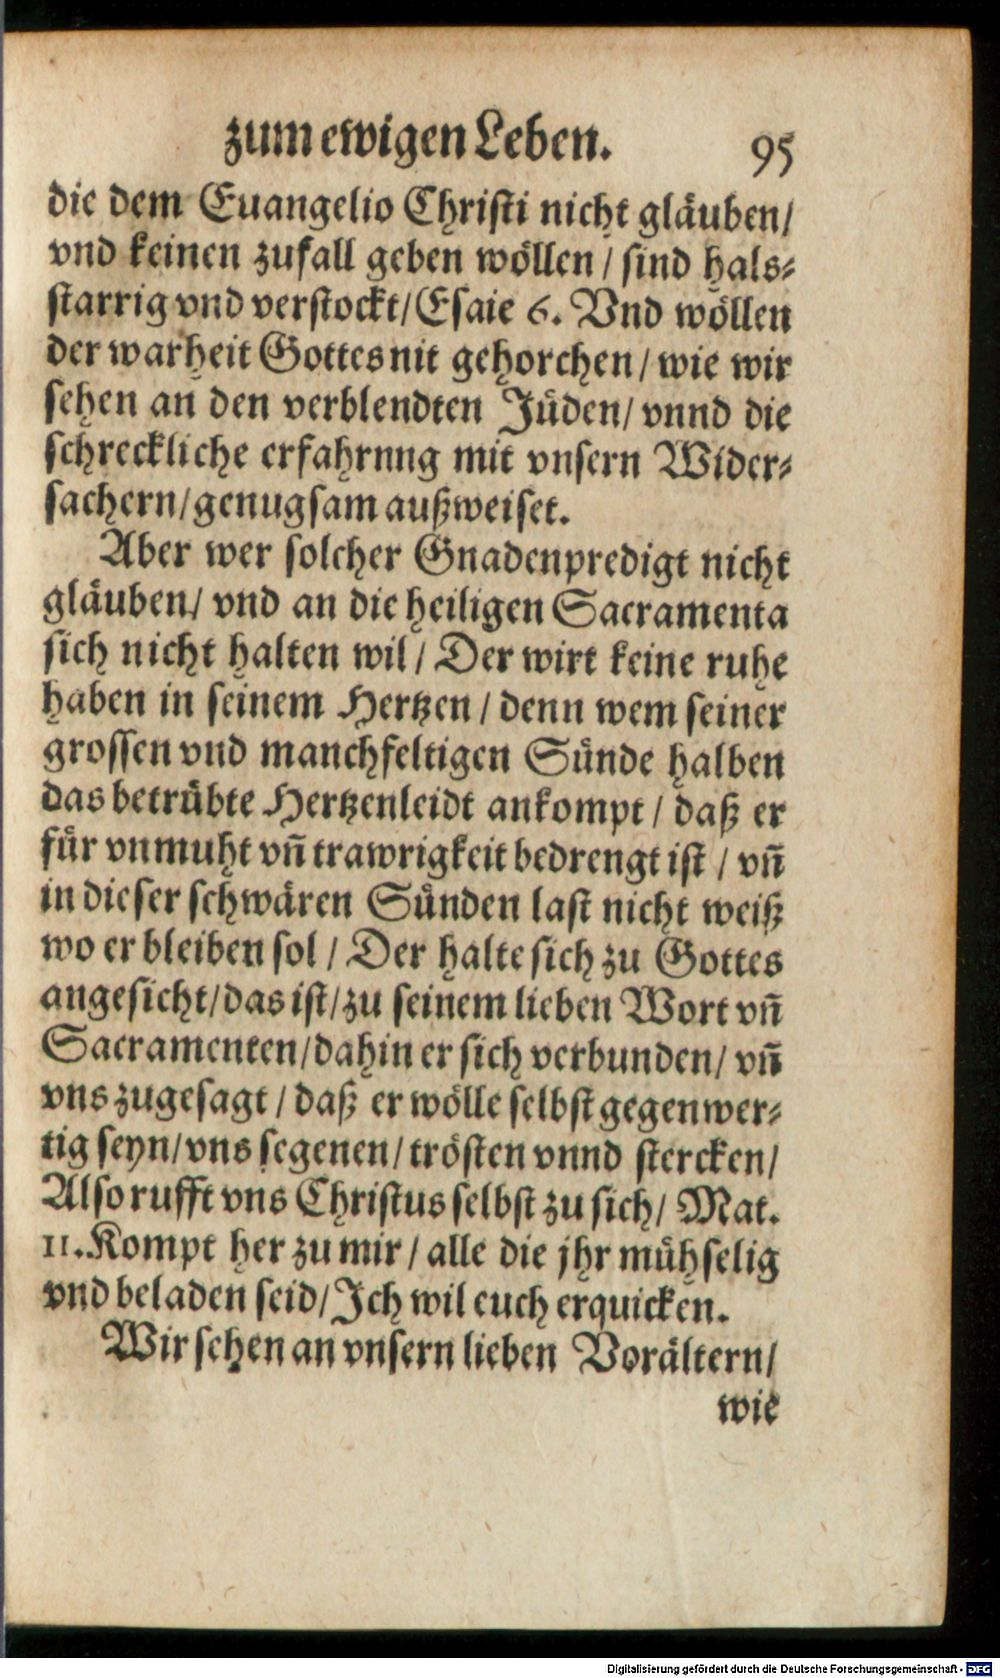 zum ewigen Leben. 95
die dem Euangelio Christi nicht gläuben/
vnd keinen zufall geben wöllen / sind hals-
starrig vnd verstockt/Esaie 6. Vnd wöllen
der warheit Gottes nit gehorchen / wie wir
sehen an den verblendten Jüden/ vnnd die
schreckliche erfahrnng mit vnsern Wider-
sachern/genugsam außweiset.
Aber wer solcher Gnadenpredigt nicht
gläuben/ vnd an die heiligen Sacramenta
sich nicht halten wil / Der wirt keine ruhe
haben in seinem Hertzen / denn wem seiner
grossen vnd manchfeltigen Sünde halben
das betrübte Hertzenleidt ankompt / daß er
für vnmuht vñ trawrigkeit bedrengt ist / vñ
in dieser schwären Sünden last nicht weiß
wo er bleiben sol / Der halte sich zu Gottes
angesicht/das ist/zu seinem lieben Wort vñ
Sacramenten/dahin er sich verbunden/ vñ
vns zugesagt / daß er wölle selbst gegenwer-
tig seyn/vns segenen/trösten vnnd stercken/
Also rufft vns Christus selbst zu sich/ Mat.
11. Kompt her zu mir / alle die jhr mühselig
vnd beladen seid/Ich wil euch erquicken.
Wir sehen an vnsern lieben Vorältern/
wie
Digitalisierung gefördert durch die Deutsche Forschungsgemeinschaft - DFG